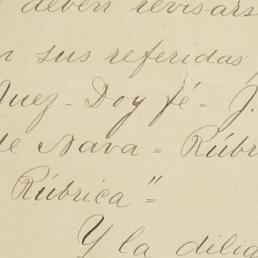 deben revisars
sus referidas
Juez - Doy fé - J.
de Nava = Rúbr
Rúbrica" =
Y la dilig